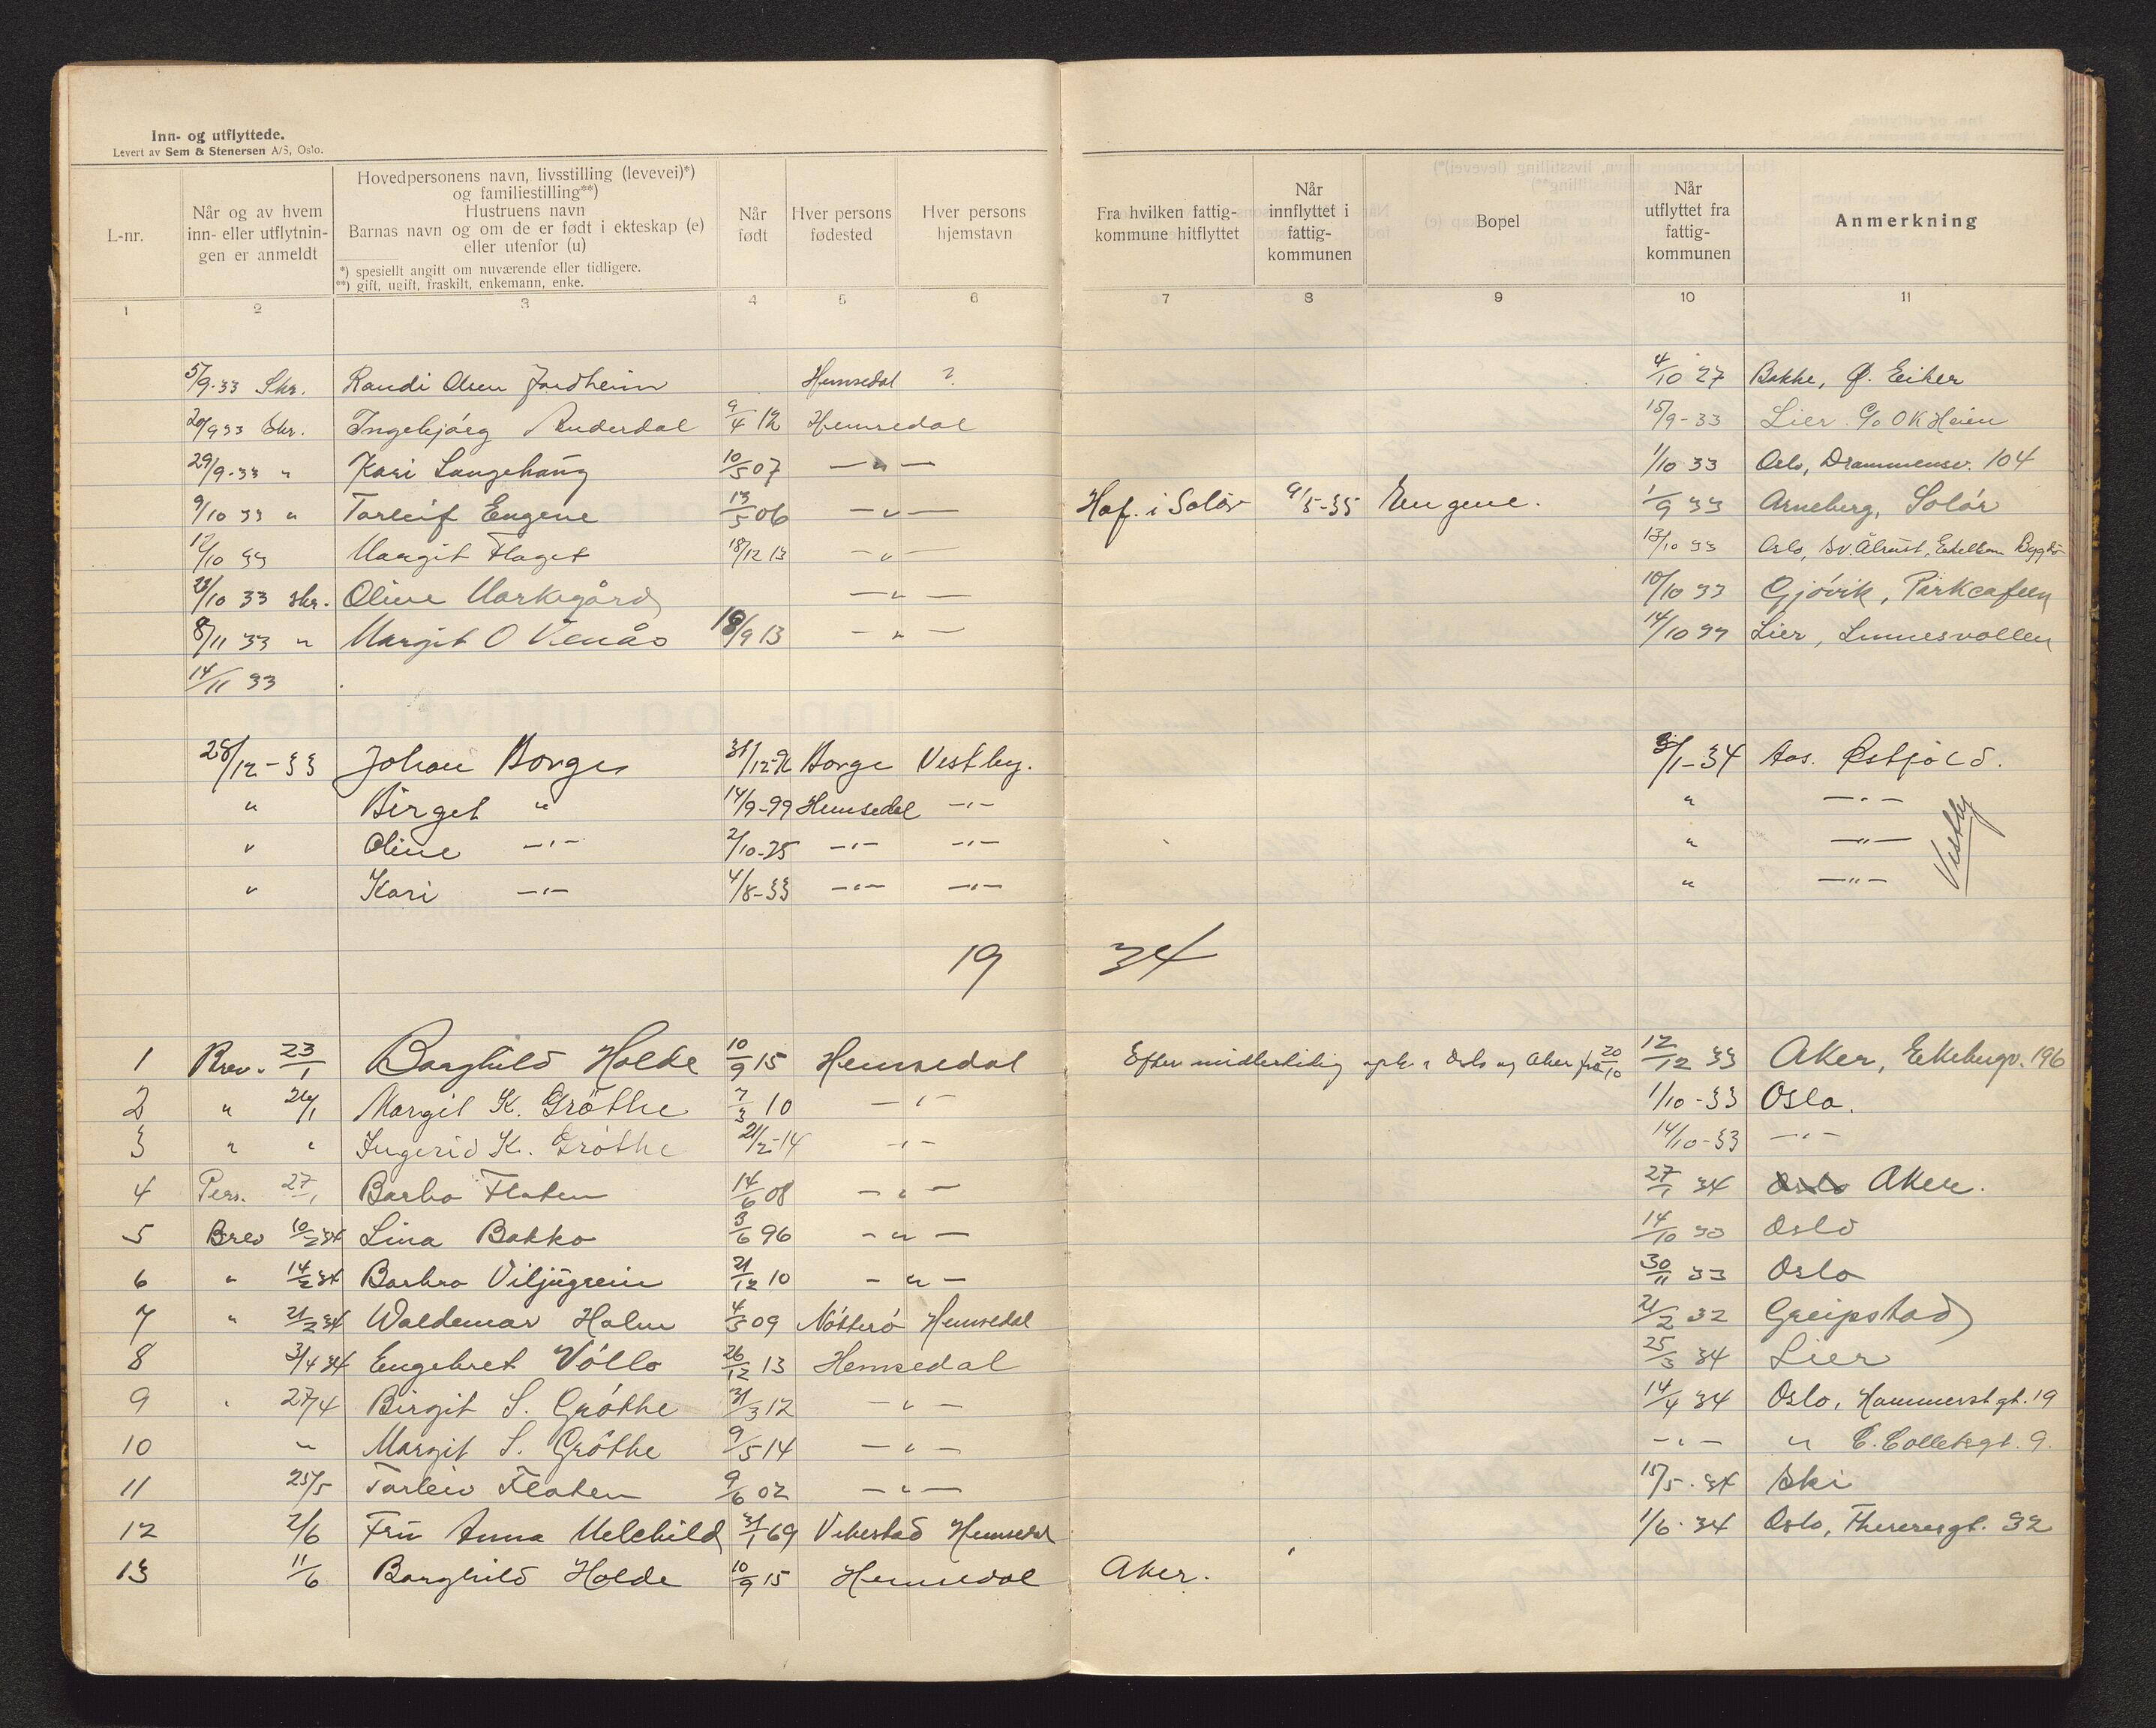 Inn- og utflyttede.
Levert av Sem & Stenersen A/S, Oslo.
L-nr.
Når og av hvem
inn- eller utflytnin-
gen er anmeldt
Hovedpersonens navn, livsstilling (levevei)*)
og familiestilling**)
Hustruens navn
Barnas navn og om de er født i ekteskap (e)
eller utenfor (u)
*) spesiellt angitt om nuværende eller tidligere.
**) gift, ugift, fraskilt, enkemann, enke.
Når
født
Hver persons
fødested
Hver persons
hjemstavn
Fra hvilken fattig-
kommune hitflyttet
Når
innflyttet i
fattig-
kommunen
Bopel
Når
utflyttet fra
fattig-
kommunen
Anmerkning
1 2 3 4 5 6 7 8 9 10 11
5/9-33 Skr. Randi Olsen Jordheim Hemsedal ? 4/10 27 Bakke, Ø. Eiker
20/9 33 Skr. Ingebjörg Anderdal 9/4 12 Hemsedal 15/9-33 Lier C/o O K Heien
29/9-33 " Kari Langehaug 10/5 07 —"— 1/10 33 Oslo, Drammensv. 104
9/10 33 " Torleif Engene 13/5 06 —"— Hof. i Solör 9/5-35 Engene. 1/9 33 Arneberg, Solör
12/10 33 Margit Flaget 18/12 13 —"— 13/10 33 Oslo,
23/10 33 skr. Oline Markegård —"— 10/10 33 Gjövik, Parkcafeen
8/11 33 " Margit O Venås 18/9 13 —"— 14/10 33 Lier, Linnesvollen
14/11 33
28/12-33 Johan Borge 31/12- Borge Vestby. 3/1-34 Aas. Østfold.
" Birget " 14/9-99 Hemsedal —"— " —"—
" Oline —"— 2/10-25 —"— —"— " —"—
" Kari —"— 4/8-33 —"— —"— " —"—
Vestby
19 34
1 Brev. 23/1 Borghild Holde 10/9 15 Hemsedal Efter midlertidig oph. i Oslo og Aker fra 20/10 12/12 33 Aker, Ekebergv. 196
2 " 26/1 Margit K. Gröthe 7/3 10 —"— 1/10-33 Oslo.
3 " " Ingerid K. Gröthe 21/2-14 —"— 14/10-33 —"—
4 Pers. 27/1 Barbo Flaten 14/6 08 —"— 27/1 34 Oslo Aker.
5 Brev 10/2 34 Lina Bakko 3/6 96 —"— 14/10 33 Oslo
6 " 14/2 34 Barbro Viljugrein 21/12 10 —"— 30/11 33 Oslo
7 " 21/2 34 Waldemar Holm 4/3 09 Nötterö Hemsedal 21/2 32 Greipstad
8 3/4 34 Engebret Völlo 26/12 13 Hemsedal 25/3 34 Lier
9 " 27/4 Birgit S. Gröthe 31/3 12 —"— 14/4 34 Oslo, Hammerstgt. 19
10 " Margit S. Gröthe 9/5 14 —"— —"— " C. Colletsgt. 9.
11 25/5 Torleiv Flaten 9/6 02 —"— 15/5-34 Ski
12 2/6 Fru Anna Melchild 31/1 69 Vibestad Hemsedal 1/6-34 Oslo, Theresesgt. 32
13 11/6 Borghild Holde 10/9 15 Hemsedal Aker.